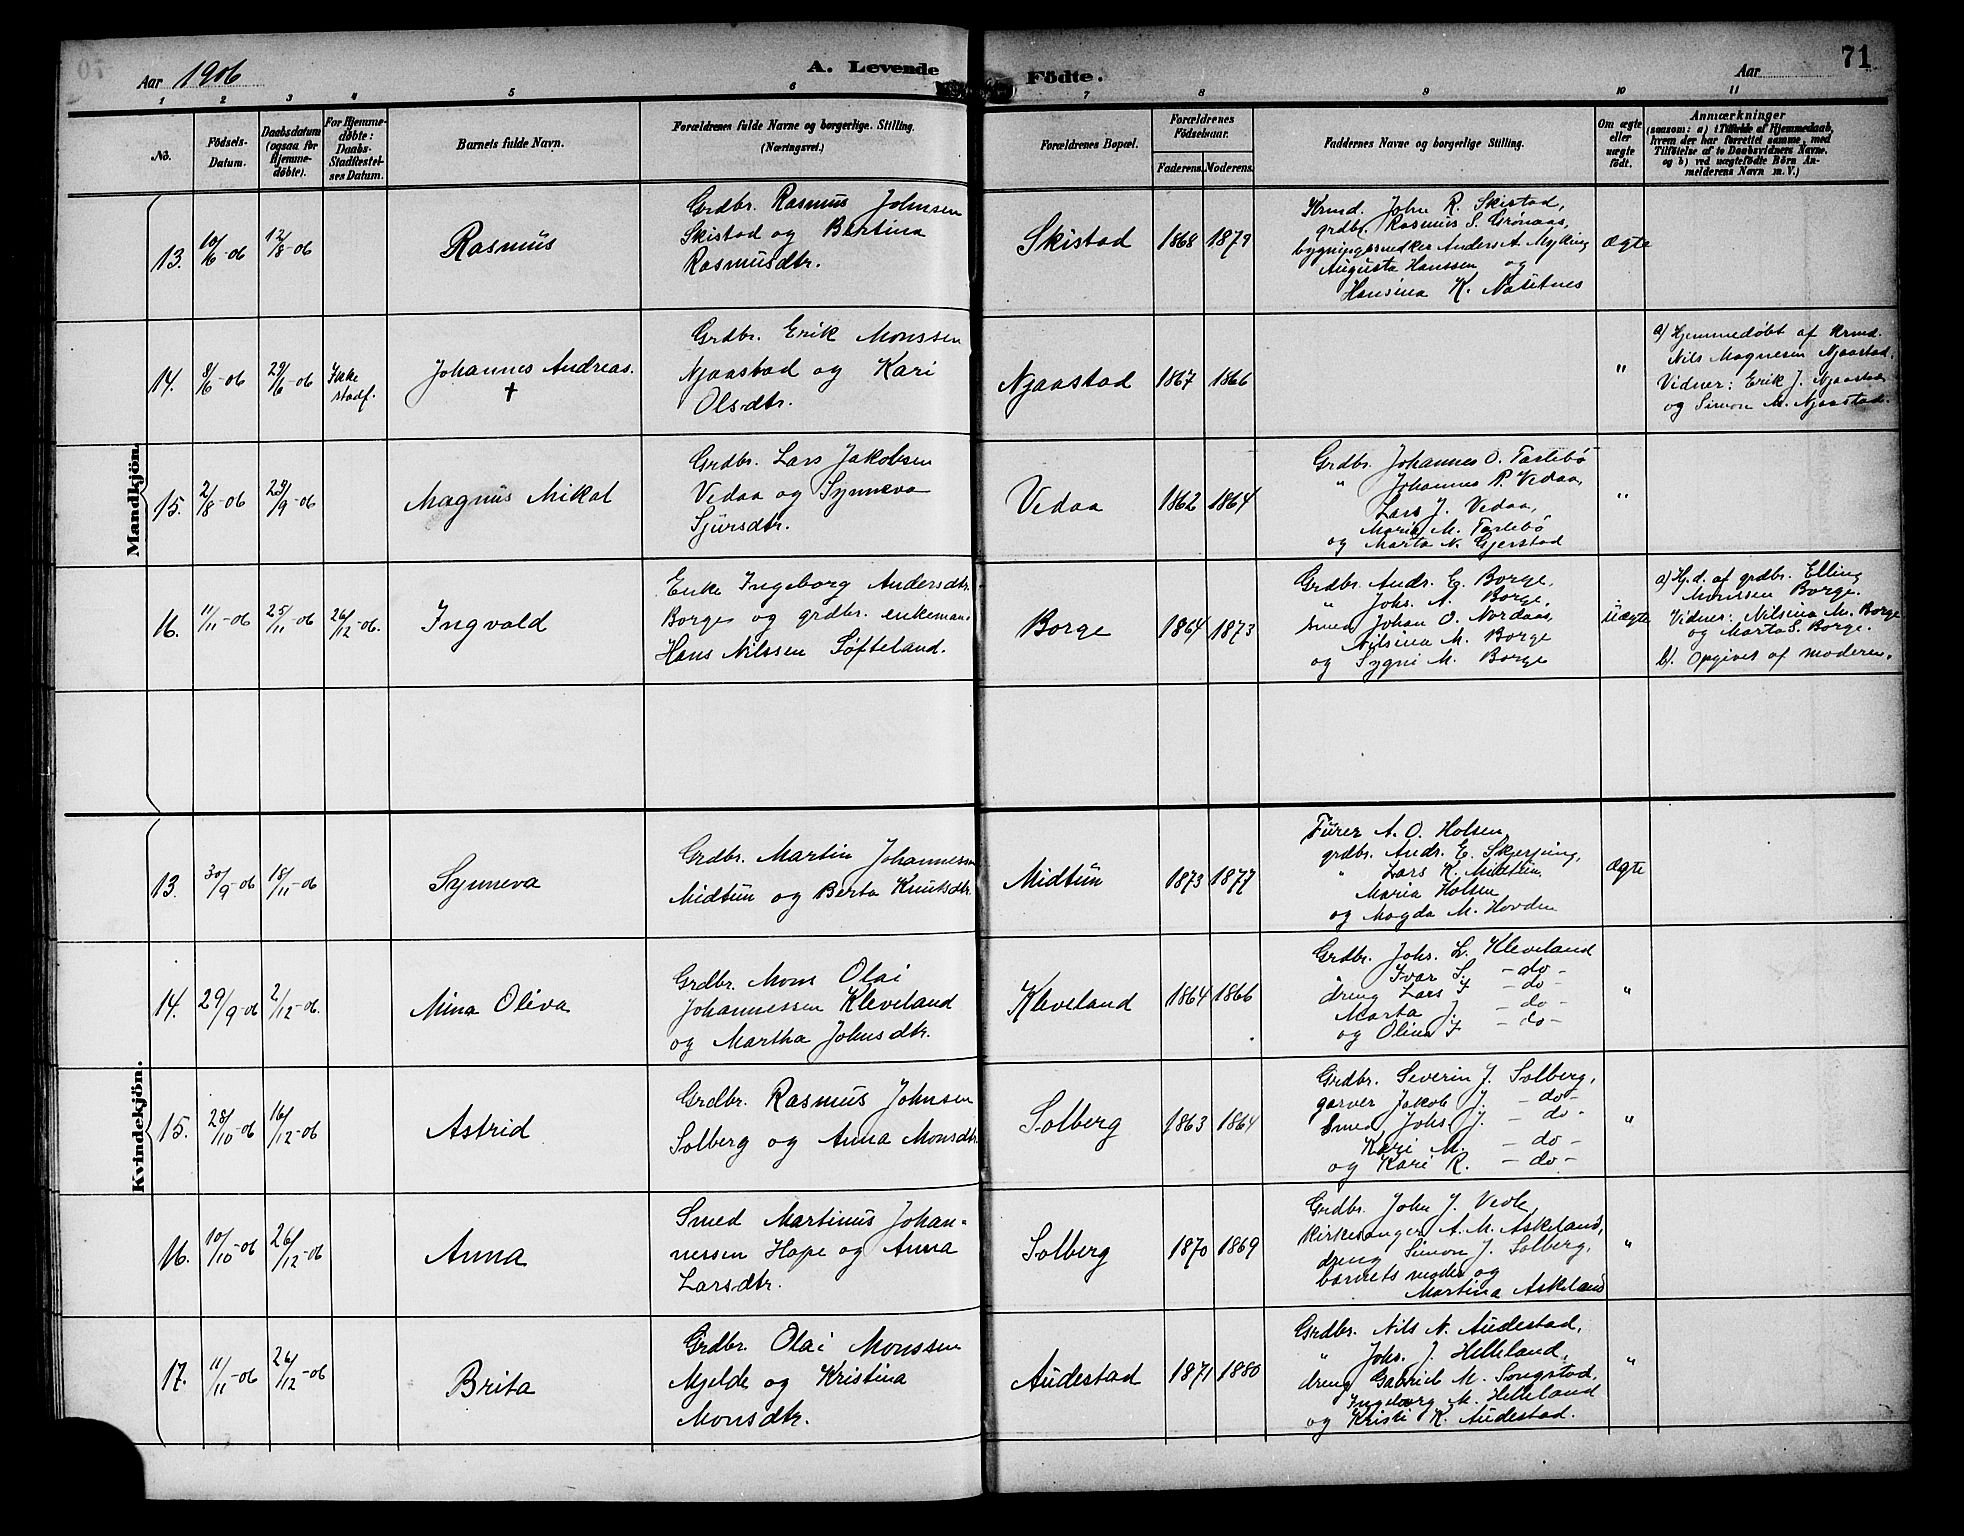 Aar 1906
A. Levende Födte.
Aar
71
1 2 3 4 5 6 7 8 9 10 11
No.
Födsels-Datum.
Daabsdatum (ogsaa for Hjemmedøbte).
For Hjemmedøbte: Daabs-Stadfæstelses Datum.
Barnets fulde Navn.
Forældrenes fulde Navne og borgerlige Stilling.
(Næringsvei.)
Forældrenes Bopæl.
Forældrenes Födselsaar.
Faderens. Moderens.
Faddernes Navne og borgerlige Stilling.
Om ægte eller uægte født.
Anmærkninger
(saasom: a) i Tilfælde af Hjemmedaab, hvem der har forrettet samme, med Tilföielse af to Daabsvidners Navne, og b) ved uægtefödte Börn Anmelderens Navn m. V.)
Mandkjön.
13. 10/6-06 12/8-06 Rasmus
Grdbr. Rasmus Johnsen
Skistad og Bertina
Rasmusdtr.
Skistad 1868 1879
Krmd. John R. Skistad,
grdbr. Rasmus S. Grønaas,
bygningssnedker Anders A. Myking
Augusta Hanssen og
Hansina K.
Ægte
14. 8/6-06 29/6-06 Ikke stadf. Johannes Andreas. †
Grdbr. Erik Monssen
Njaastad og Kari
Olsdtr.
Njaastad 1867 1866 "
a) Hjemmedøbt af krmd.
Nils Magnesen Njaastad.
Vidner: Erik J. Njaastad
og Simon M. Njaastad.
15. 2/8-06 23/9-06 Magnus Mikal
Grdbr. Lars Jakobsen
Vedaa og Synneva
Sjursdtr.
Vedaa 1862 1864
Grdbr. Johannes O. Tartebø
" Johannes P. Vedaa,
Lars J. Vedaa,
Maria M. Tartebø
og Marta N. Gjerstad
"
16. 11/11-06 25/11-06 26/12-06. Ingvald
Enke Ingeborg Andersdtr.
Borge og grdbr. enkemand
Hans Nilssen Søfteland.
Borge 1864 1873
Grdbr. Andr. E. Borge,
" Johs. A. Borge,
smed Johan O. Nordaas,
Nilsina M. Borge
og Sygni M. Borge
Uægte
a) Hj.d. af grdbr. Elling
Monssen Borge.
Vidner: Nilsina M. Borge
og Marta S. Borge.
b). Opgivet af moderen.
Kvindekjön.
13. 30/9-06 18/11-06 Synneva
Grdbr. Martin Johannessen
Midtun og Berta Knutsdtr.
Midtun 1873 1877
Furer A. O. Holsen,
grdbr. Andr. E. Skjerping,
" Lars K. Midtun,
Maria Holsen
og Magda M. Hovden
Ægte
14. 29/9-06 2/12-06. Mina Oliva
Grdbr. Mons Olai
Johannessen Kleveland
og Martha Johnsdtr.
Kleveland 1864 1866
Grdbr. Johs. L. Kleveland
" Ivar I. -do-
dreng Lars I -do-
Marta J. -do-
og Olina I -do-
"
15. 28/10-06 16/12-06 Astrid
Grdbr. Rasmus Johnsen
Solberg og Anna Monsdtr.
Solberg 1863 1864
Grdbr. Severin J. Solberg,
garver Jakob J. -do-
Smed Johs J. -do-
Kari M. -do-
og Kari R. -do-
"
16. 10/10-06 26/12-06 Anna
Smed Martinus Johan-
nessen Hope og Anna
Larsdtr.
Solberg 1870 1869
Grdbr. John J. Vedle,
kirkesanger A. M. Askeland,
dreng Simon J. Solberg,
barnets moder og
Martina Askeland
"
17. 11/11-06 26/12-06 Brita
Grdbr. Olai Monssen
Mjelde og Kristina
Monsdtr.
Audestad 1871 1880
Grdbr. Nils N. Audestad,
" Johs. J. Helleland,
dreng Gabriel M. Songstad,
Ingeborg M. Helleland
og Kristi K. Audestad.
"